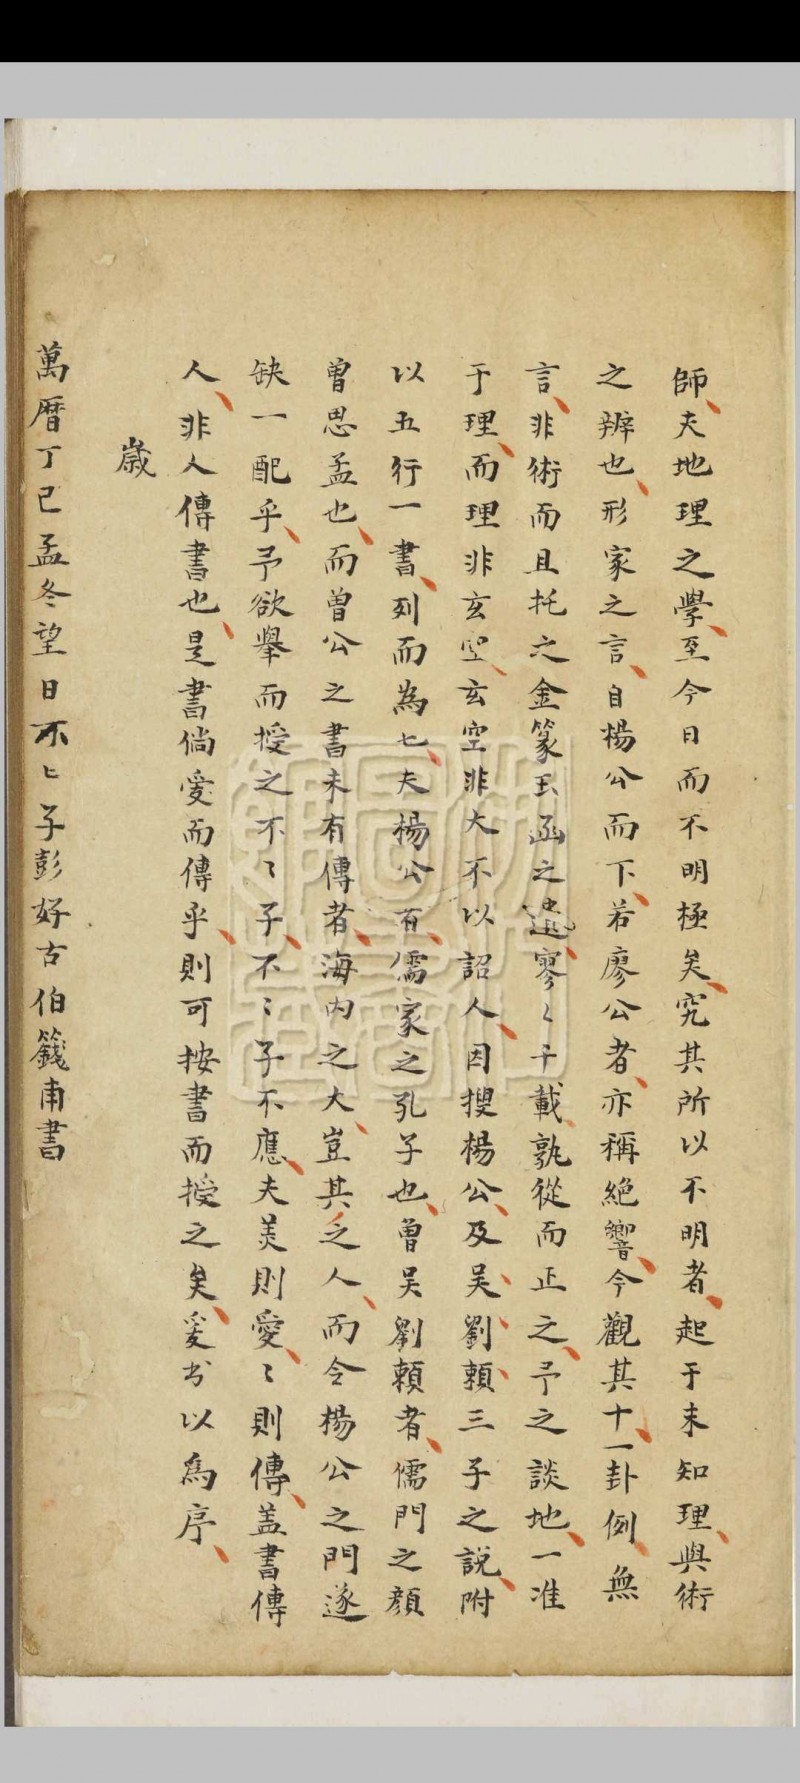 師夫地理之學至今日而不明極矣究其所以不明者起于未知理與術
之辨也形家之言自楊公而下若廖公者亦稱絕響今觀其十一卦例無
言非術而且托之金篆玉函之遺寥〻千載孰從而正之予之談地一准
于理而理非玄空玄空非大不以詔人因搜楊公及吴劉頼三子之說附
以五行一書列而為七夫楊公有儒家之孔子也曾吴劉頼者儒門之顏
曾思孟也而曾公之書未有傳者海内之大豈其乏人而令楊公之門遂
缺一配乎予欲舉而授之不〻子不〻子不應夫美則愛〻則傳盖書傳
人非人傳書也是書倘爱而傳乎則可按書而授之矣爰书以為序
歲
萬曆丁巳孟冬望日不〻子彭好古伯籛甫書